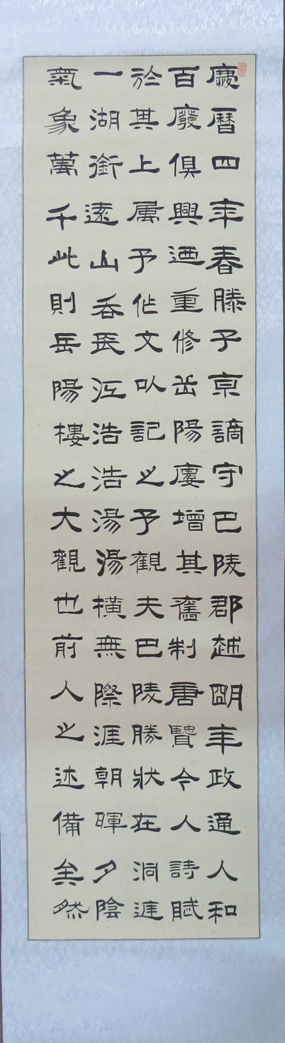 慶曆四年春滕子京謫守巴陵郡越朙年政通人和
百廢俱興迺重修岳陽廔增其舊制唐賢今人詩賦
於其上属予作文以記之予觀夫巴陵勝狀在洞庭
一湖銜遠山吞長江浩浩湯湯橫無際涯朝暉夕陰
氣象萬千此則岳陽樓之大觀也前人之述備矣然